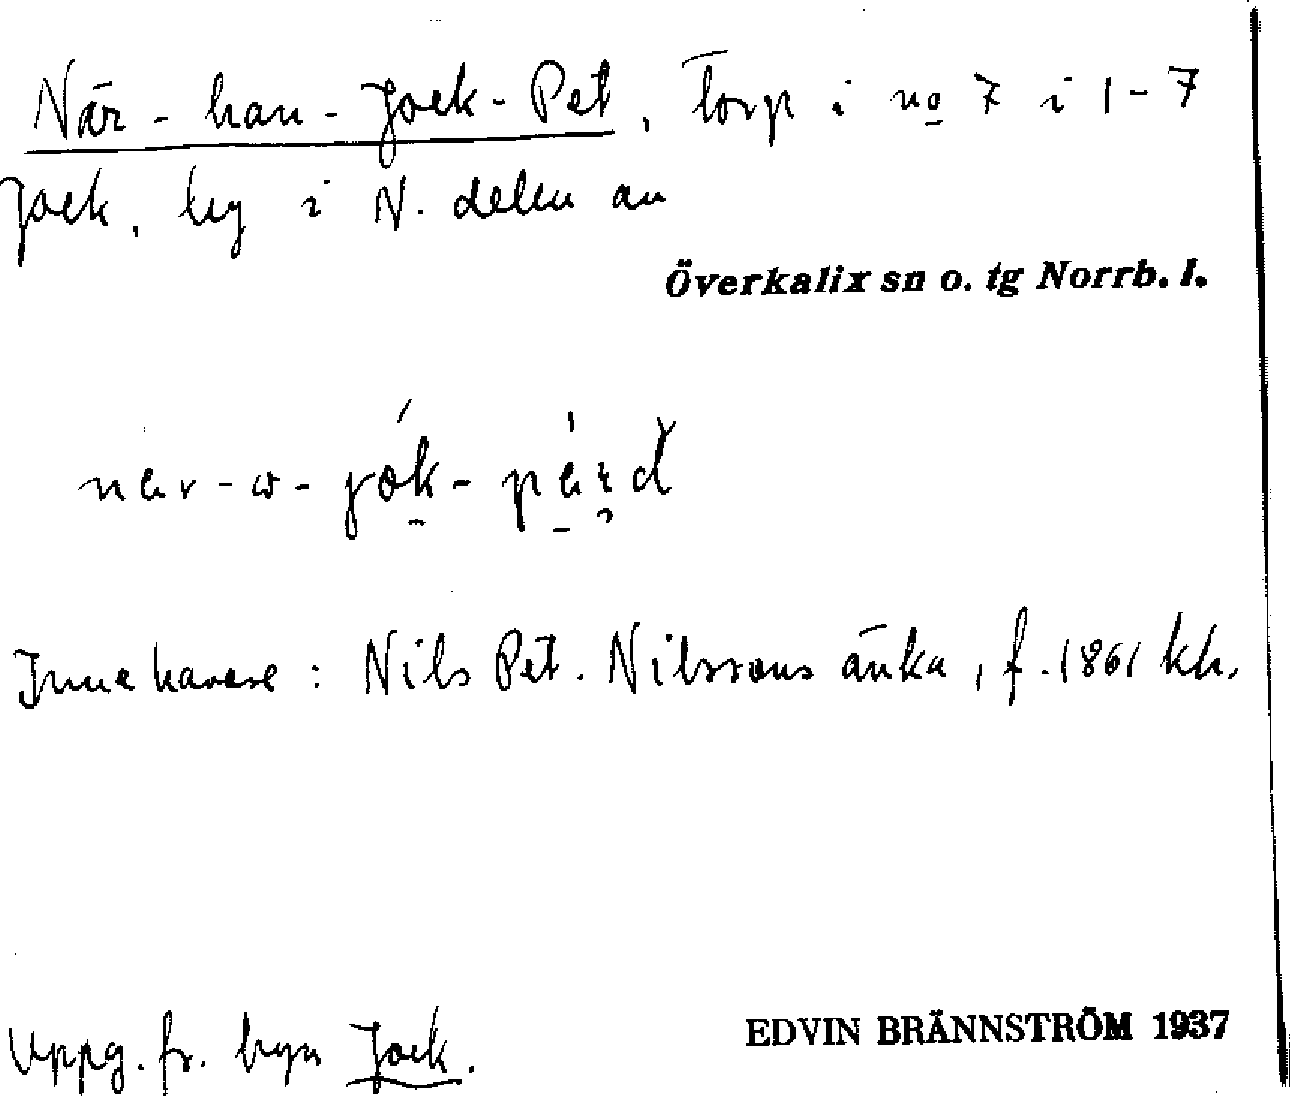 När-han-Jock-Pet, Torp i no 7 i 1-7
Jock, by i N. delen av
Överkalix sn o. tg Norrb. l.
Innehavare: Nils Pet. Nilssons änka, f. 1861 kh.
Uppg. fr. byn Jock.
EDVIN BRÄNNSTRÖM 1937